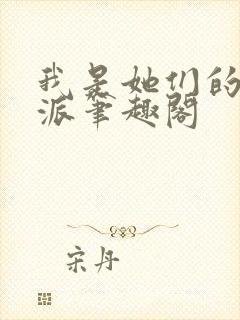 我是她们的
派笔趣阁
宋丹